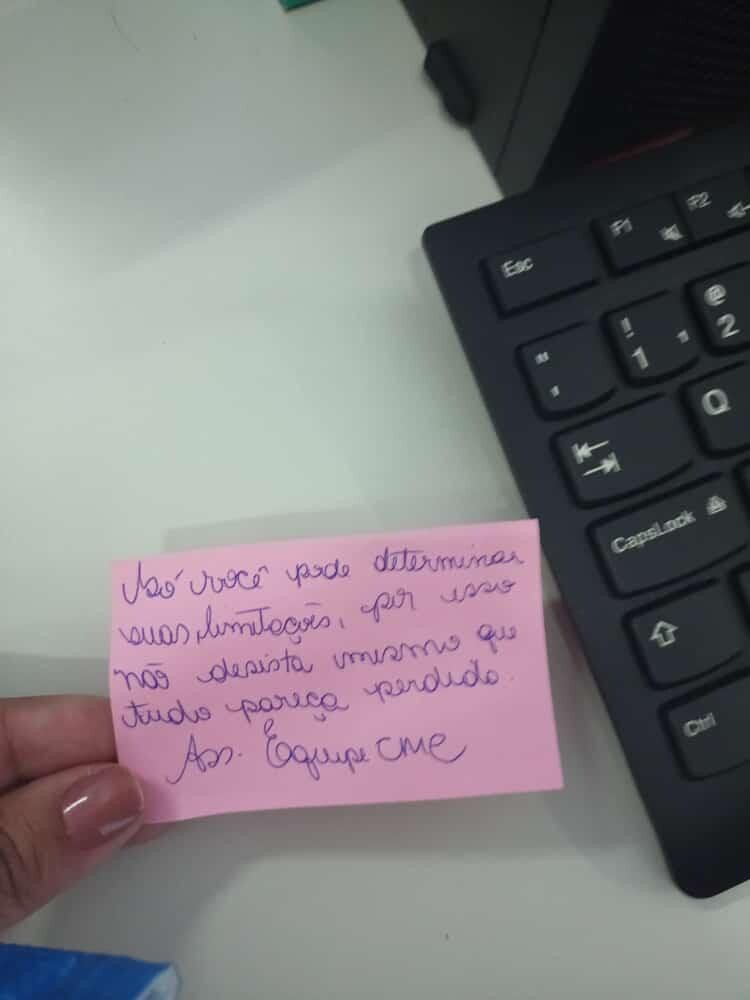 Só você pode determinar
suas limitações, por isso
não desista mesmo que
tudo pareça perdido.
Ass. Equipe CME
Esc
F1
F2
!
1
@
2
"
'
Q
CapsLock
Ctrl